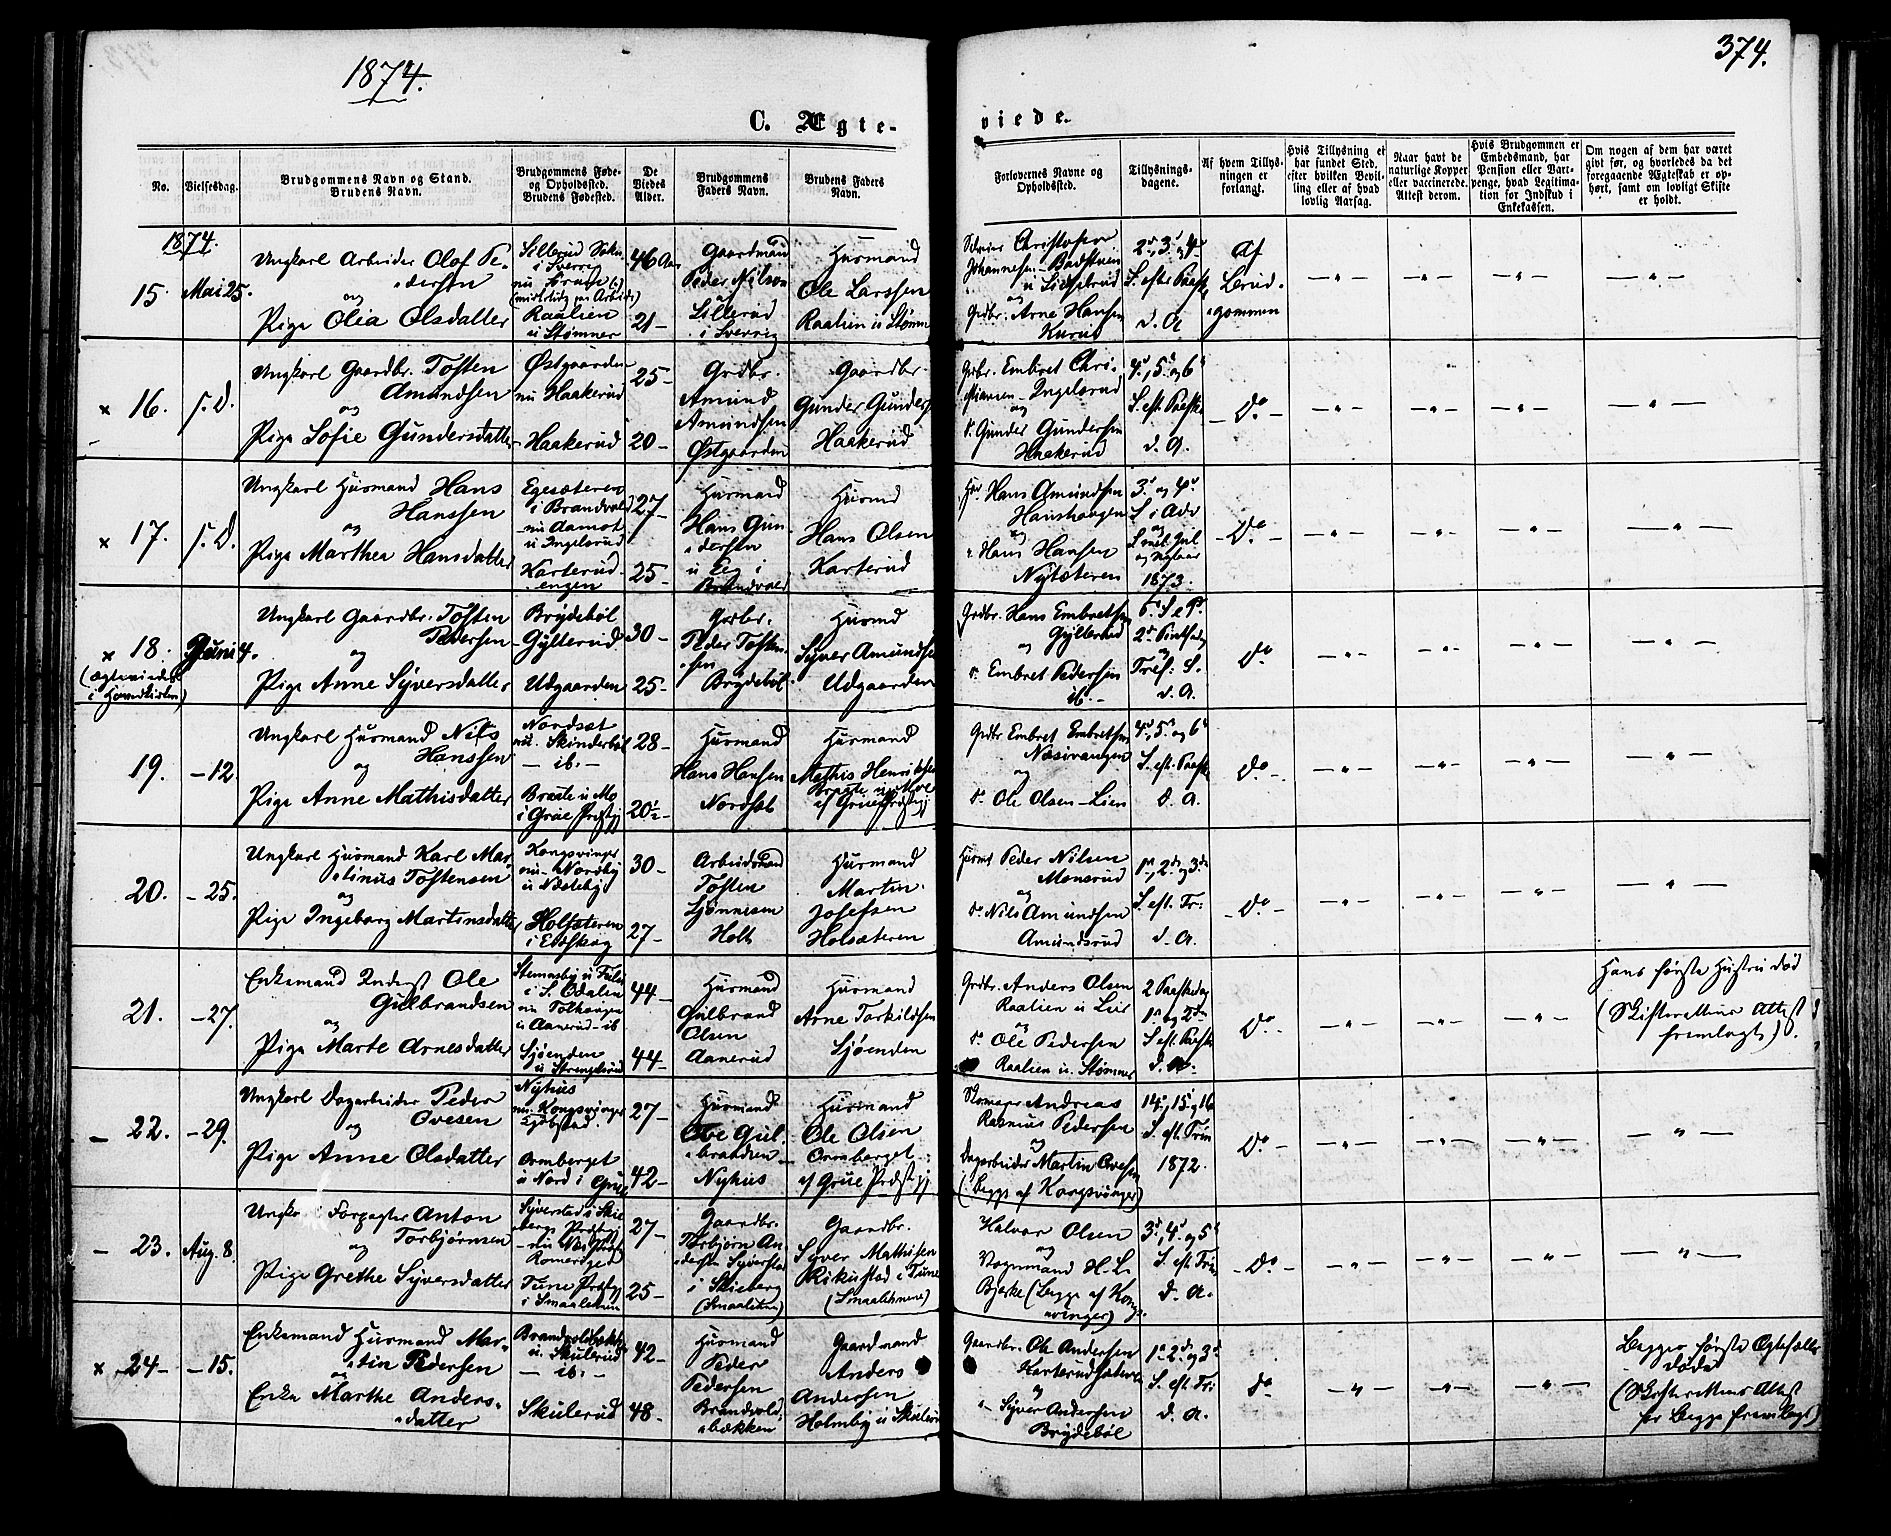 1874.
374.
C. Ægte-
viede.
No.
Vielsesdag.
Brudgommens Navn og Stand.
Brudens Navn.
Brudgommens Føde-
og Opholdsted.
Brudens Fødested.
De
Viedes
Alder.
Brudgommens
Faders Navn.
Brudens Faders
Navn.
Forlovernes Navne og
Opholdsted.
Tillysnings-
dagene.
Af hvem Tillys-
ningen er
forlangt.
Hvis Tillysning ei
har fundet Sted,
efter hvilken Bevil-
ling eller af hvad
lovlig Aarsag.
Naar havt de
naturlige Kopper
eller vaccinerede.
Attest derom.
Hvis Brudgommen er
Embedsmand, har
Pension eller Vart-
penge, hvad Legitima-
tion for Indskud i
Enkekassen.
Om nogen af dem har været
givt før, og hvorledes da det
foregaaende Ægteskab er op-
hørt, samt om lovligt Skifte
er holdt.
1874.
15
Mai 25.
Ungkarl Arbeider Olof Pe-
dersen
og
Pige Olia Olsdatter
Sillerud
i Sverrig
Raalien
u Stømner
46 Aar
21-
Gaardmand
Peder Nilson
af
Sillerud
i Sverrig
Husmand
Ole Larssen
Raalien u Stømn
Christofer
Johannesen-
Grdbr. Arne Hansen
2d, 3d og 4d
S. efter Paaske
d. A
Af
Brud-
gommen
x 16.
s. D.
Ungkarl Gaardbr. Tosten
Amundsen
og
Pige Sofie Gundersdatter
Østgaarden
nu Haakerud
Haakerud
25-
20-
Grdbr.
Amund
Amundsen
Østgaarden
Gaardbr.
Gunder Gunders
Haakerud
Grdbr. Embret Chri-
stiansen - Ingelsrud
og
do Gunder Gundersen
Haakerud
4d, 5d og 6d
S. eft. Paaske
d. A.
Do -
x 17.
s. D.
Ungkarl Husmand Hans
Hanssen
og
Pige Marthea Hansdatter
Egesæteren
i Brandvold
nu Aamot
u Ingelsrud
Karterud-
engen
27-
25-
Husmand
Hans Gun-
dersen
u Eeg i
Brandvold
Husmd
Hans Olsen
Karterud
Hans Amundsen
Hanshaugen
og
Hans Hansen
Nysæteren
3d og 4d
S i Adv
og
1873.
Do -
x 18.
Juni 4.
(ægteviede
i Hovedkirken)
Ungkarl Gaardbr. Tosten
Pedersen
og
Pige Anne Syversdatter
Brydebøl
Gyllerud
Udgaarden
30-
25-
Grdbr.
Peder Tosten-
sen
Brydebøl
Husmd
Syver Amundsen
Udgaarden
Grdbr. Hans Embretsen
Gyllerud
og
do Embret Pedersen
ib. -
6te S e P.
2d Pintsedag
og
Tref: S.
d. A.
Do
19.
-12.
Ungkarl Husmand Nils
Hanssen
og
Pige Anne Mathisdatter
Nordset
nu Skinderbøl
- ib. -
Braate u Mo
i Grue Præstgj
28-
20½-
Husmand
Hans Hansen
Nordset
Husmand
Mathis Henriksen
Braate u Mo
af Grue Præstgj
Grdbr Embret Embretsen
og
do Ole Olsen-Lien
4d, 5d og 6d
S. eft. Paaske
d. A.
Do -
20.
-25.
Ungkarl Husmand Karl Mar-
tinus Tostensen
og
Pige Ingeborg Martinsdatter
Kongsvinger
nu Nordby
Holsæteren
i Eidskog
30-
27-
Arbeidsmand
Tosten
Sjønnesen
Holt
Husmand
Martin
Josefsen
Holsæteren
Husmd Peder Nilsen
Monsrud
og
do Nils Amundsen
Amundsrud
1s, 2d og 3d
S. eft. Tri:
d. A.
Do -
21.
-27.
Enkemand Inderst Ole
Gulbrandsen
og
Pige Marte Arnesdatter
i S. Odalen
u Aanerud - ib
Sjøenden
44-
44-
Husmand
Gulbrand
Olsen
Aanerud
Husmand
Arne Torkildsen
Sjøenden
Grdbr. Anders Olsen
Raalien u Lier
og
do Ole Pedersen
Raalien u. Stømner
2 Paaskedag
1s og 2d
S. eft. Paaske
d. A.
Do -
Hans første Hustru død
(Skifterettens Attest
fremlagt).
- 22.
-29.
Ungkarl Dagarbeider Peder
Ovesen
og
Pige Anne Olsdatter
Nyhus
nu Kongsvinger
Kjøbstad.
Ormberget
u Nord i Grue
27-
42-
Husmand
Ove Gul-
brandsen
Nyhus
Husmand
Ole Olsen
Ormberget
af Grue Præstgj
Skomager Andreas
Rasmus Pedersen
og
Dagarbeider Martin Ovesen
(Begge af Kongsvinger)
14d, 15 og 16
S. eft. Trin
1872.
Do
- 23.
Aug. 8.
Ungkarl Forpagter Anton
Torbjørnsen
og
Pige Grethe Syversdatter
Syverstad i Skie-
bergs Præstgj
Romerige
Tune Præstgj
i Smaalenene
27-
25-
Gaardbr.
Torbjørn An-
dersen Syverstad
i Skieberg
(Smaalenen)
Gaardbr.
Syver Mathisen
Rikustad i Tune
(Smaalenene)
Halvor Olsen
og
Vognmand H. L.
Bjerke (Begge af Kong-
svinger)
3d, 4d og 5d
S. eft. Trin
d. A.
Do -
x 24-
-15.
Enkemand Husmand Mar-
tin Pedersen
og
Enke Marthe Anders-
datter
Brandvoldbækken
u. Skulerud
- ib. -
Skulerud
42-
48-
Husmand
Peder
Pedersen
Brandvold-
bækken
Gaardmand
Anders
Andersen
Holmby u Skulerud
Gaardbr. Ole Andersen
Karterudsæteren
og
Syver Andersen
Brydebøl
1s 2d og 3d
S. eft. Tri
d. A.
Do
Begges første Ægtefæller
døde
(Skifterettens Attest
for Begge fremlagt)